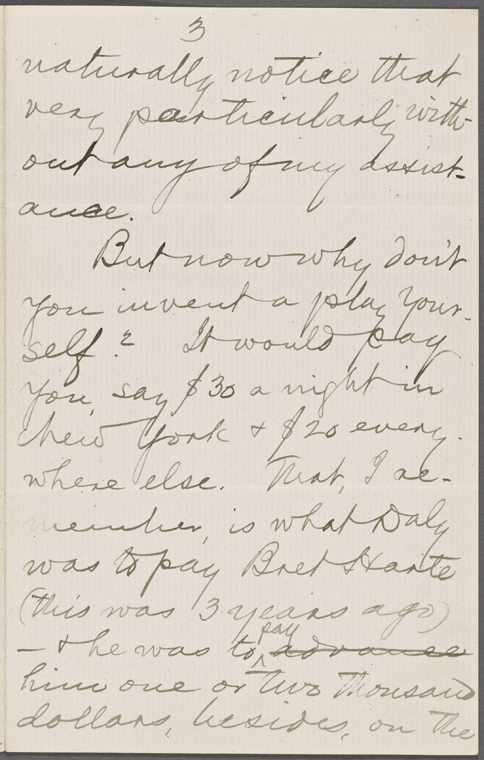 3
naturally notice that
very particularly with-
out any of my assist-
ance.
But now why don't
you invent a play your-
self? It would pay
you, say $30 a night in
New York & $20 every-
where else. That, I re-
member, is what Daly
was to pay Bret Harte
(this was 3 years ago)
— & he was to pay advance
him one or two thousand
dollars, besides, on the